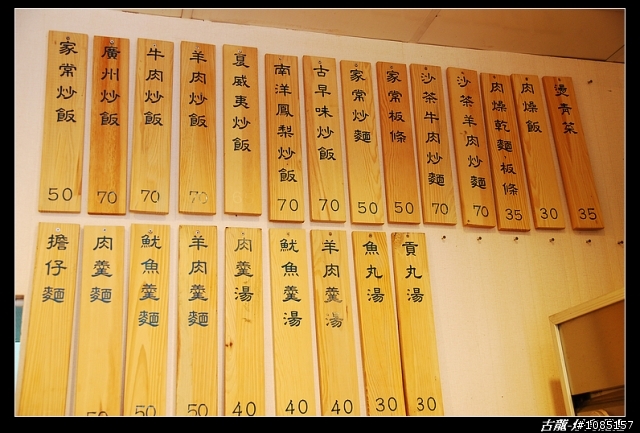 家常炒飯 50
廣州炒飯 70
牛肉炒飯 70
羊肉炒飯 70
夏威夷炒飯
南洋鳳梨炒飯 70
古早味炒飯 70
家常炒麵 50
家常板條 50
沙茶牛肉炒麵 70
沙茶羊肉炒麵 70
肉燥乾麵·板條 35
肉燥飯 30
燙青菜 35
擔仔麵
肉羹麵 50
魷魚羹麵 50
羊肉羹麵 50
肉羹湯 40
魷魚羹湯 40
羊肉羹湯 40
魚丸湯 30
貢丸湯 30